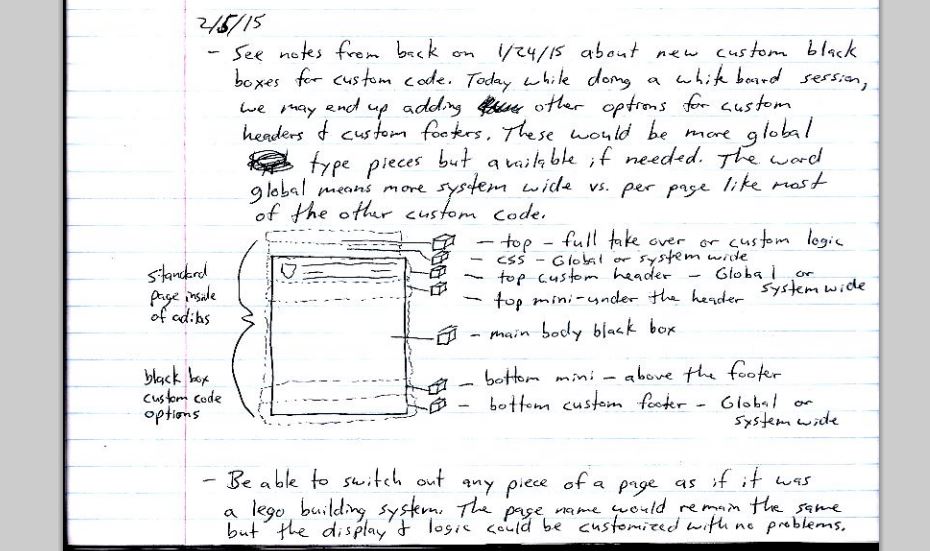 2/5/15
- See notes from back on 1/24/15 about new custom black
boxes for custom code. Today while doing a white board session,
we may end up adding other options for custom
headers & custom footers. These would be more global
type pieces but available if needed. The word
global means more system wide vs. per page like most
of the other custom code.
standard
page inside
of adilas
black box
custom code
options
- top - full take over or custom logic
- css - Global or system wide
- top custom header - Global or
system wide
- top mini-under the header
- main body black box
- bottom mini - above the footer
- bottom custom footer - Global or
system wide
- Be able to switch out any piece of a page as if it was
a lego building system. The page name would remain the same
but the display & logic could be customized with no problems.